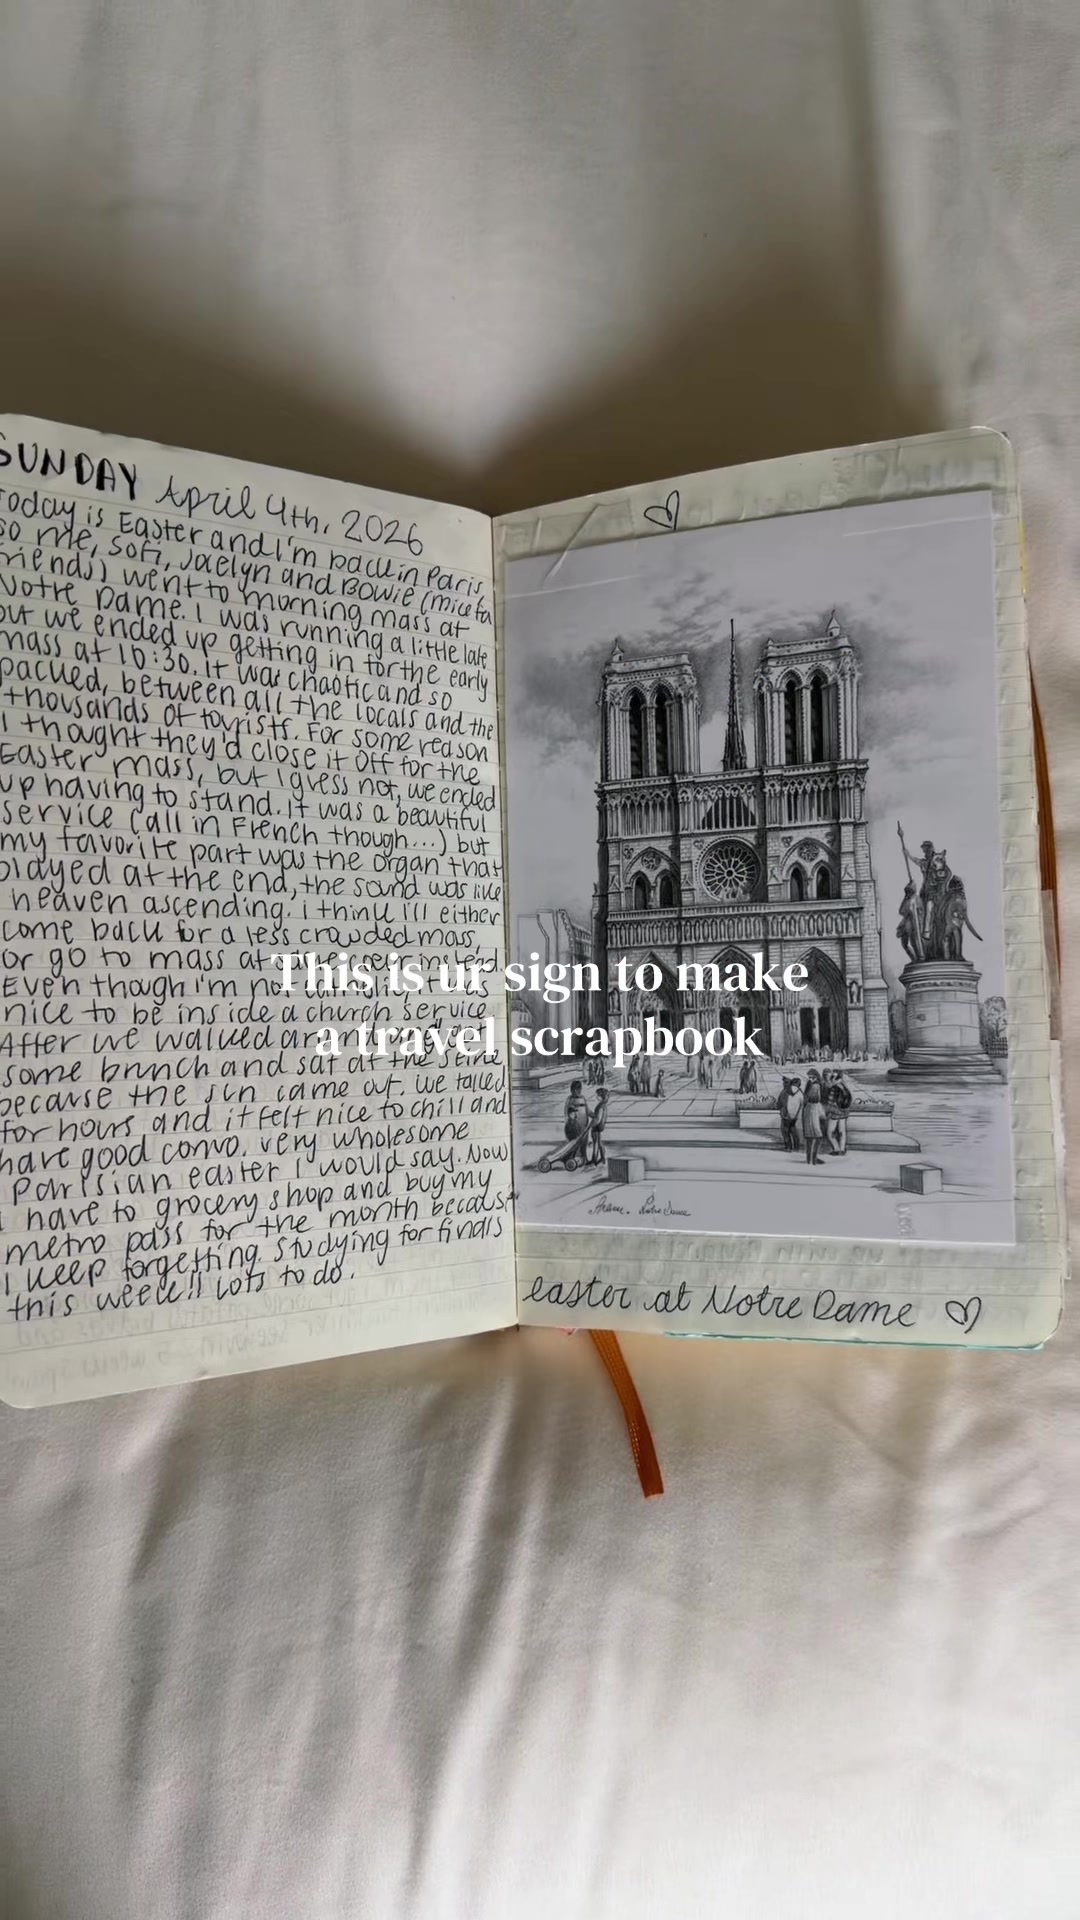 SUNDAY April 4th, 2026
Today is Easter and I'm back in Paris,
so me, Sofi, Jaelyn and Bowie (
friends) went to morning mass at
Notre Dame. I was running a little late
but we ended up getting in for the early
mass at 10:30. It was chaotic and so
packed, between all the locals and the
thousands of tourists. For some reason
I thought they'd close it off for the
Easter mass, but I guess not, we ended
up having to stand. It was a beautiful
service (all in French though...) but
my favorite part was the organ that
played at the end, the sound was like
heaven ascending. i think i'll either
come back for a less crowded mass,
or go to mass at instead.
Even though i'm not
nice to be inside a church service.
After we walked around
some brunch and sat at the Seine
because the sun came out. we talked
for hours and it felt nice to chill and
have good convo. very wholesome
Parisian easter I would say. Now
i have to grocery shop and buy my
metro pass for the month because
I keep forgetting. Studying for finals
this week!! Lots to do.
This is ur sign to make
a travel scrapbook
Notre Dame
easter at Notre Dame